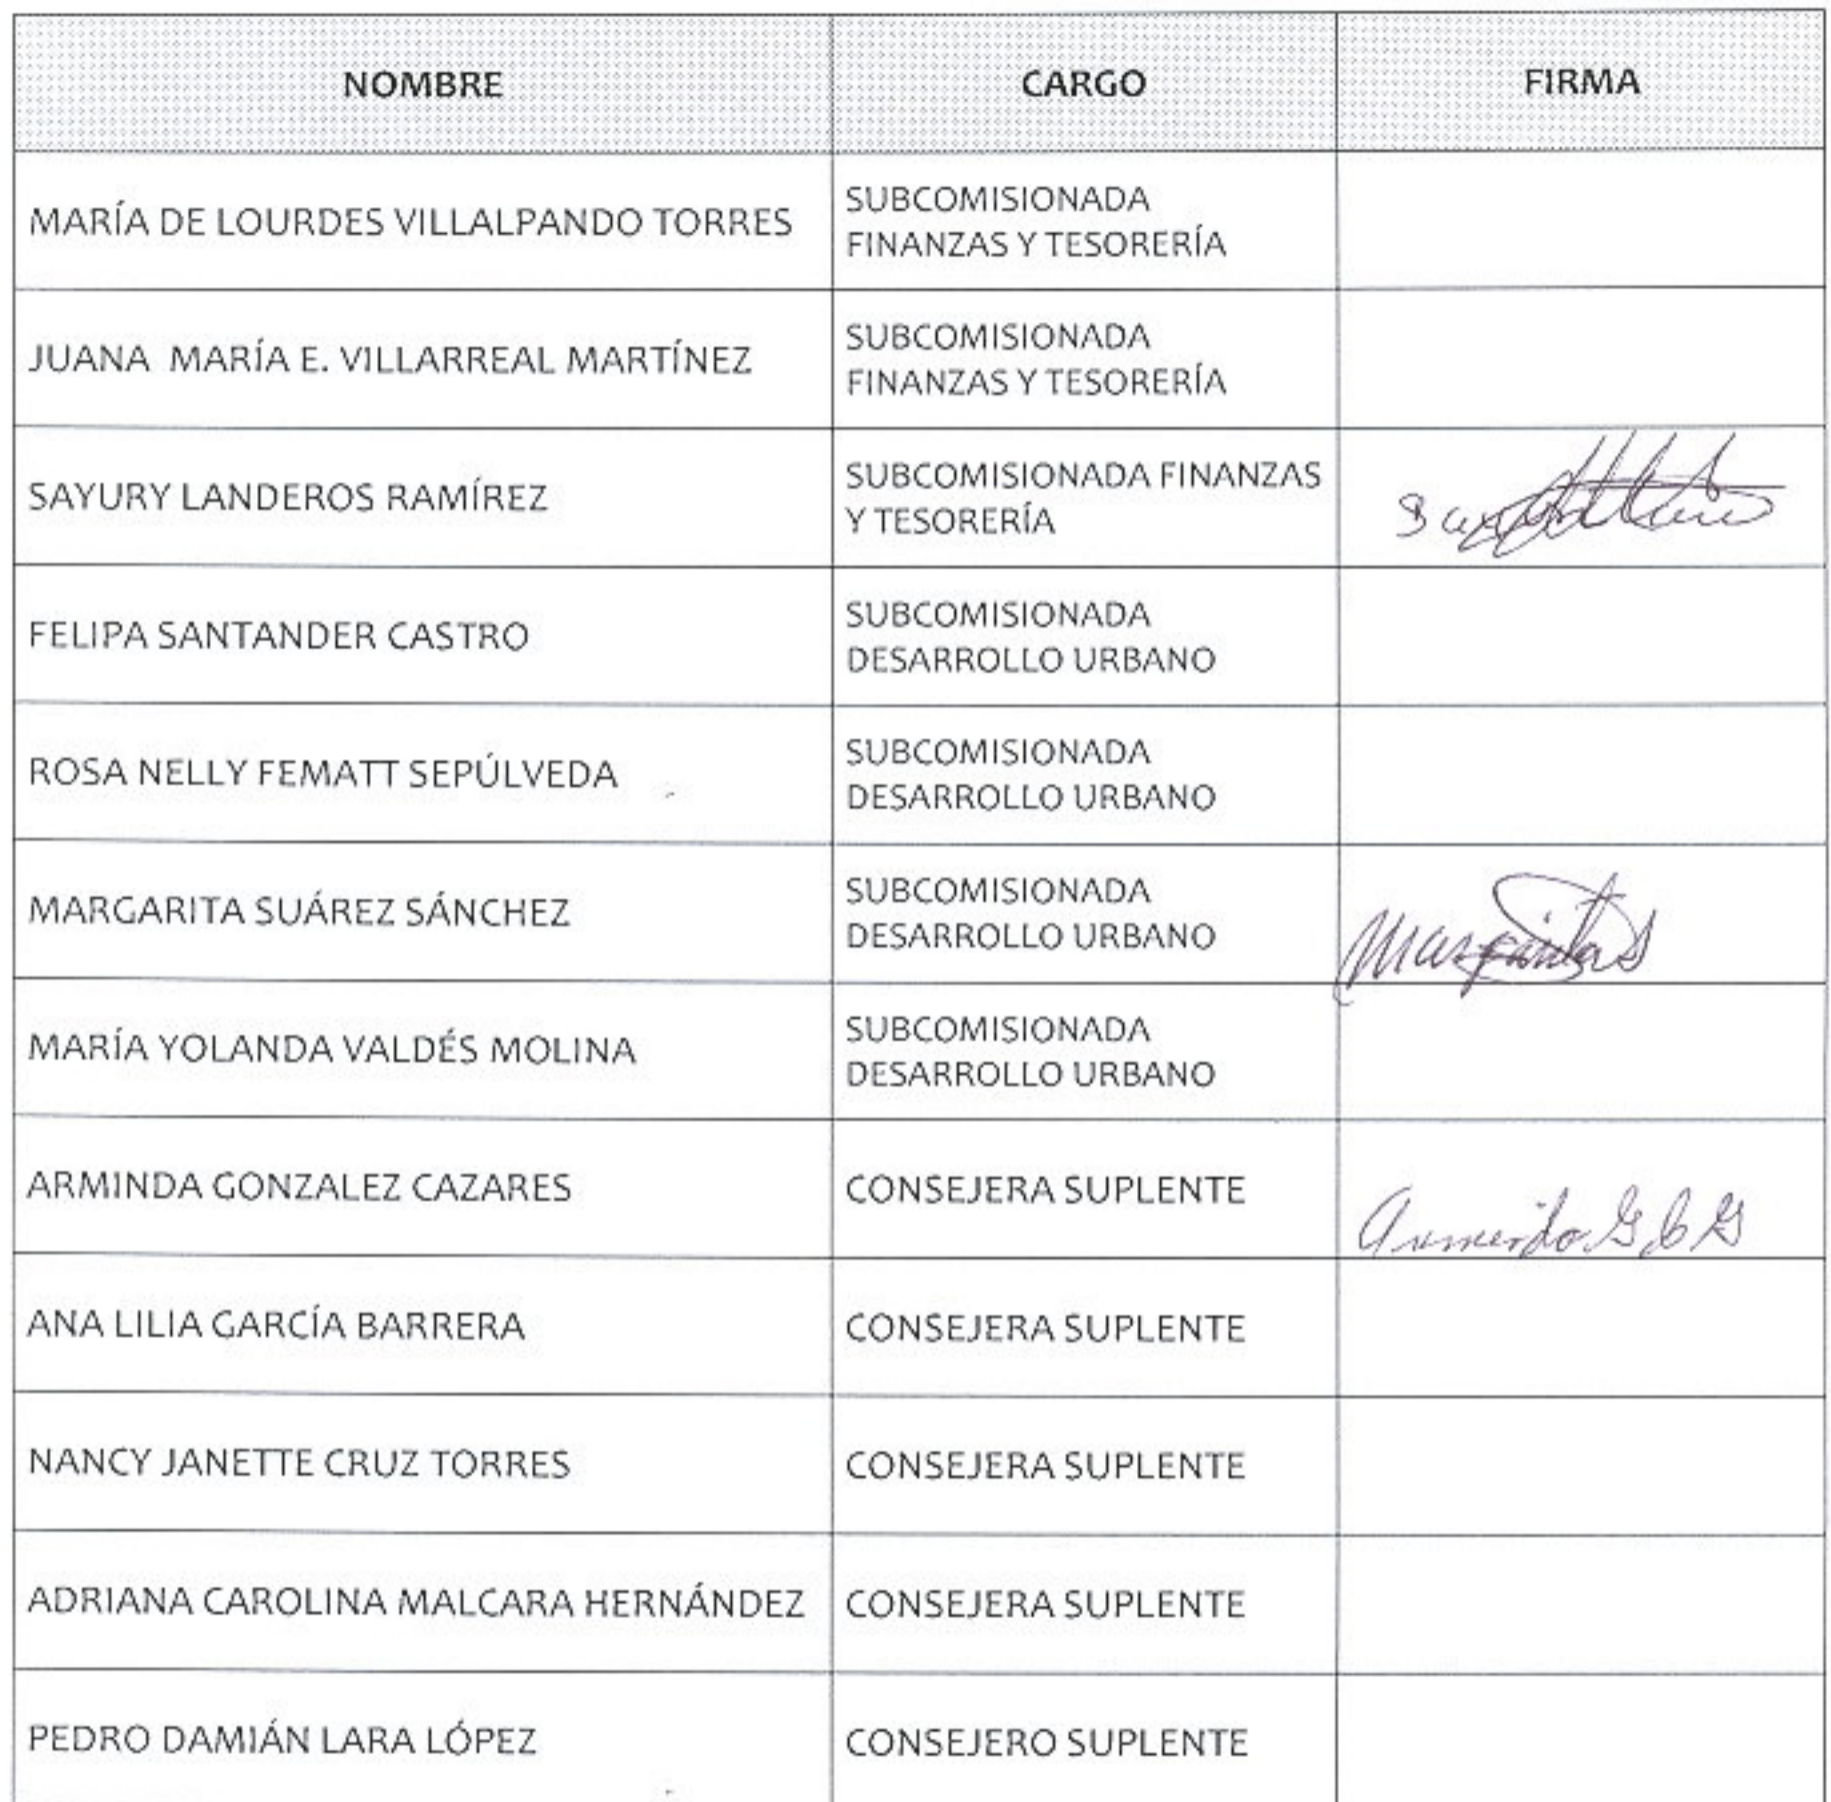 NOMBRE CARGO FIRMA
MARÍA DE LOURDES VILLALPANDO TORRES
SUBCOMISIONADA
FINANZAS Y TESORERÍA
JUANA MARÍA E. VILLARREAL MARTÍNEZ
SUBCOMISIONADA
FINANZAS Y TESORERÍA
SAYURY LANDEROS RAMÍREZ
SUBCOMISIONADA FINANZAS
Y TESORERÍA
FELIPA SANTANDER CASTRO
SUBCOMISIONADA
DESARROLLO URBANO
ROSA NELLY FEMATT SEPÚLVEDA
SUBCOMISIONADA
DESARROLLO URBANO
MARGARITA SUÁREZ SÁNCHEZ
SUBCOMISIONADA
DESARROLLO URBANO
MARÍA YOLANDA VALDÉS MOLINA
SUBCOMISIONADA
DESARROLLO URBANO
ARMINDA GONZALEZ CAZARES
CONSEJERA SUPLENTE
ANA LILIA GARCÍA BARRERA
CONSEJERA SUPLENTE
NANCY JANETTE CRUZ TORRES
CONSEJERA SUPLENTE
ADRIANA CAROLINA MALCARA HERNÁNDEZ
CONSEJERA SUPLENTE
PEDRO DAMIÁN LARA LÓPEZ
CONSEJERO SUPLENTE